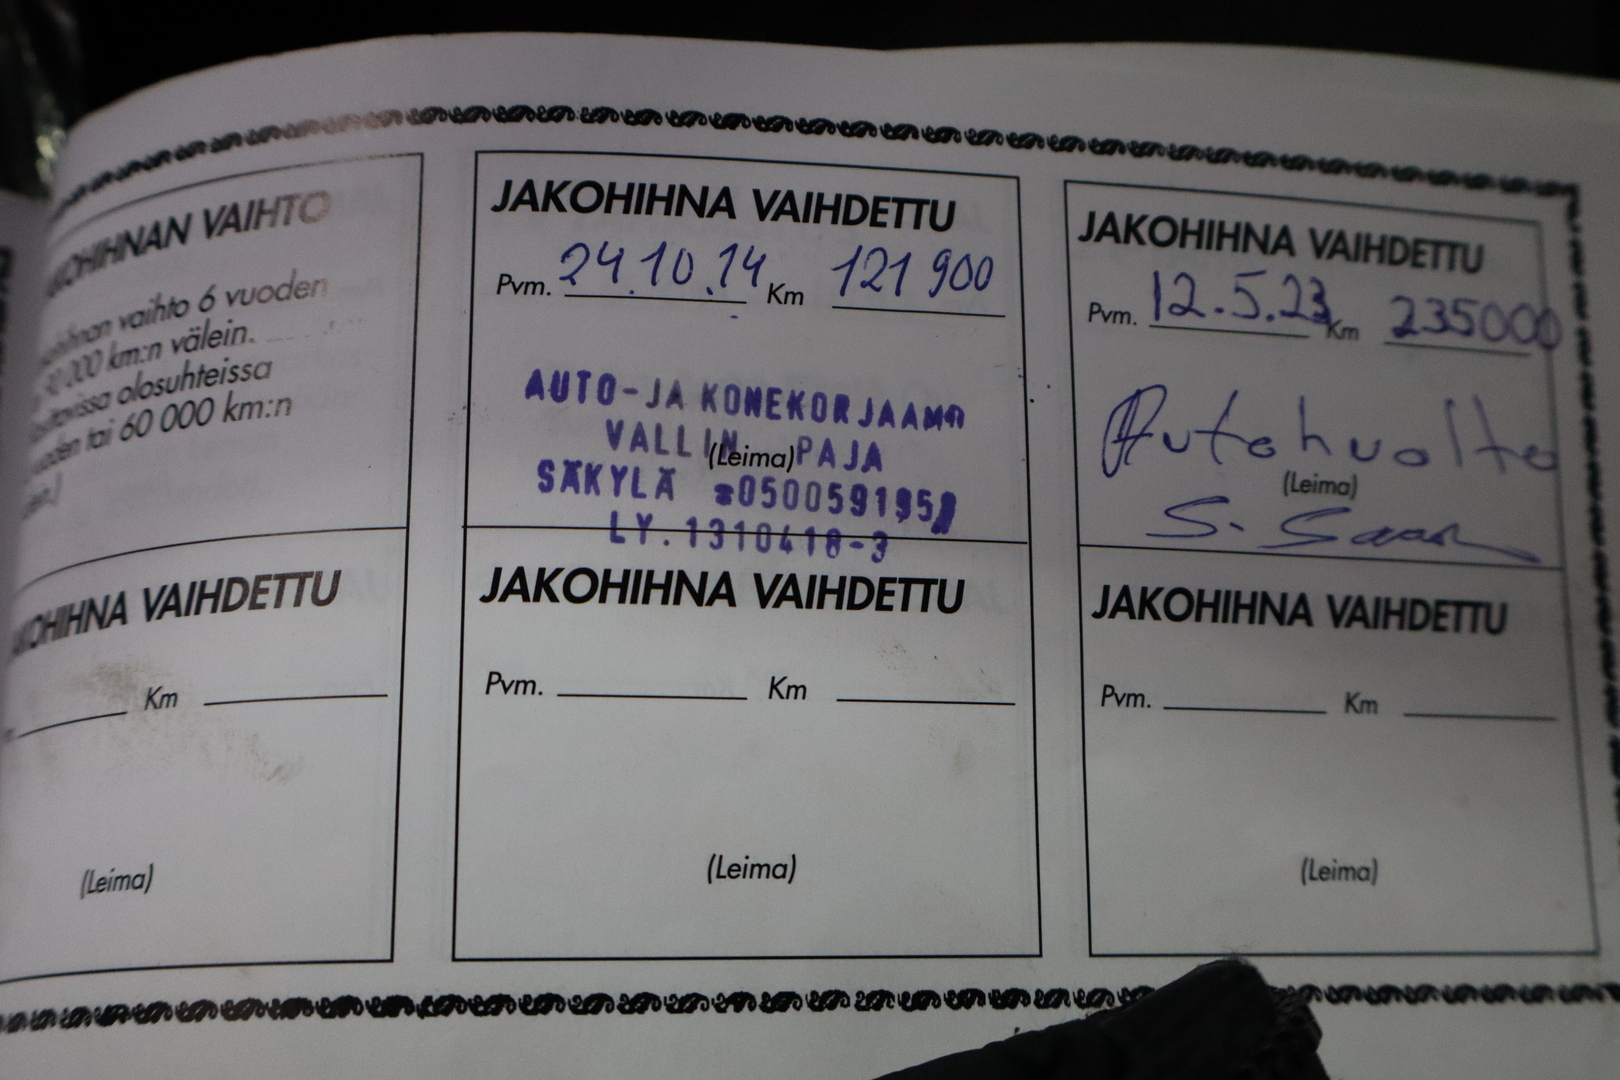 VAIHTO
vaihto 6 vuoden
000 km:n välein.
olosuhteissa
tai 60 000 km:n
JAKOHIHNA VAIHDETTU
Pvm. 24.10.14 Km 121 900
AUTO-JA KONEKORJAAMO
VALLIN PAJA
(Leima)
SÄKYLÄ
LY. 1310418-3
JAKOHIHNA VAIHDETTU
Pvm. 12.5.23 Km 235000
Autohuolto
(Leima)
S.
VAIHDETTU
Km
(Leima)
JAKOHIHNA VAIHDETTU
Pvm. Km
(Leima)
JAKOHIHNA VAIHDETTU
Pvm. Km
(Leima)